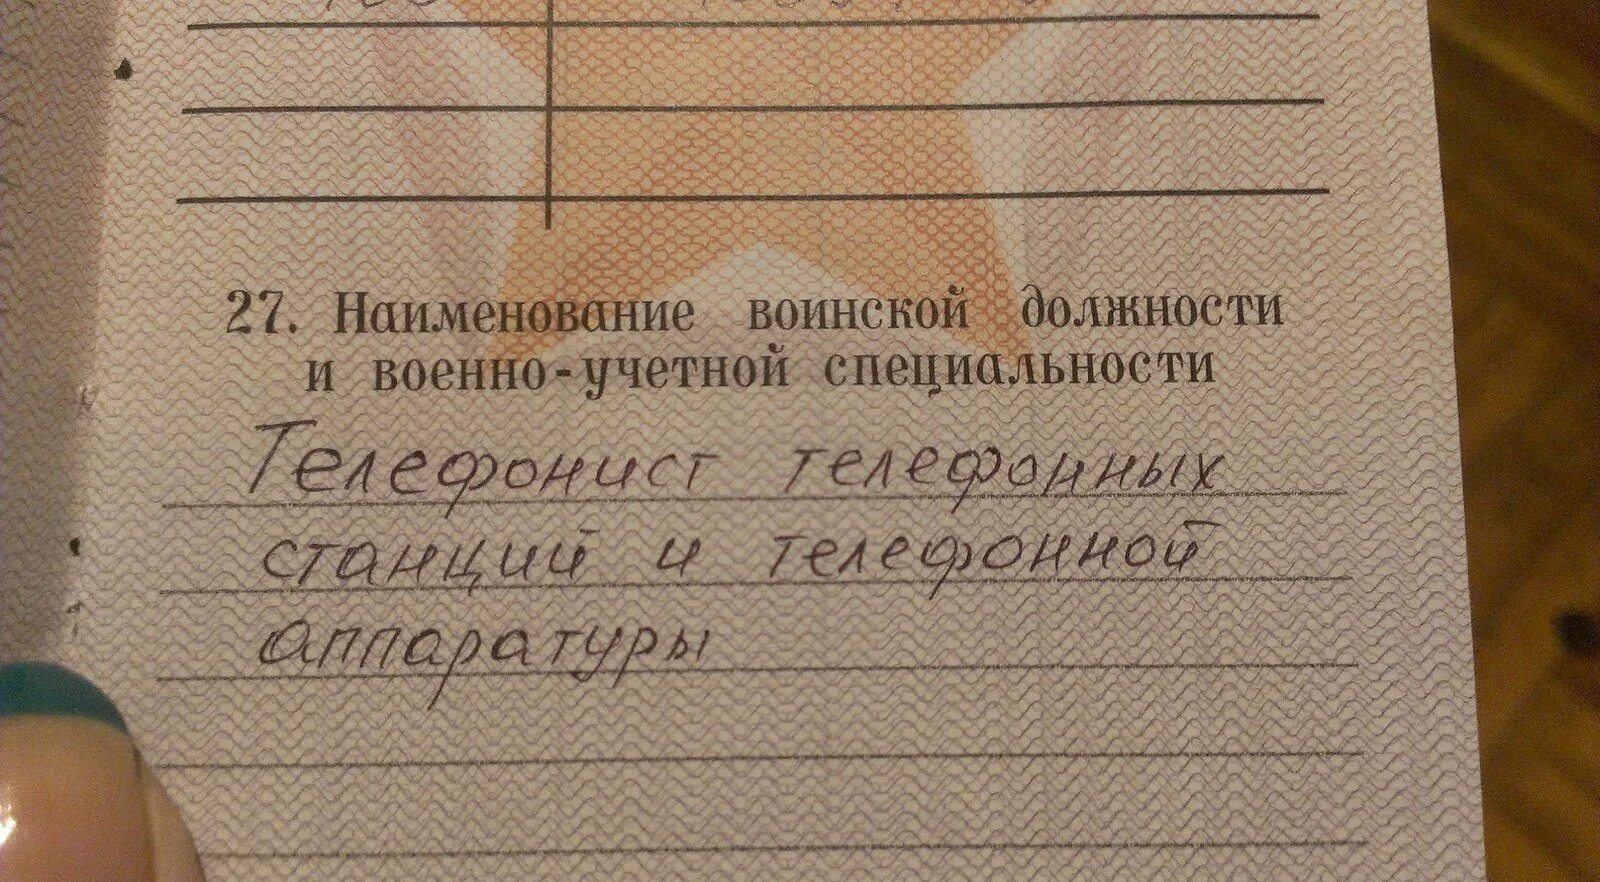 27. Наименование воинской должности
и военно-учетной специальности
Телефонист телефонных
станций и телефонной
аппаратуры